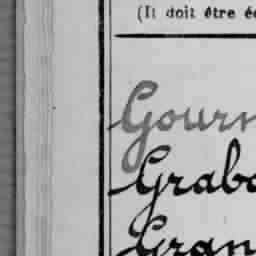 (Il doit être é
Gourn
Grabo
Gran